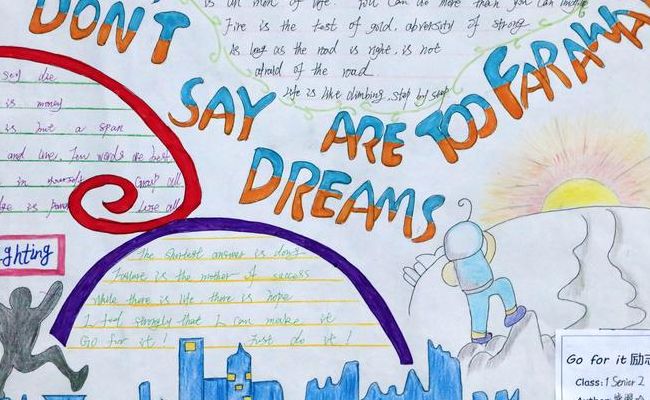 is an men of life. You can no more than you can
Fire is the test of gold, adversity of strong
As long as the road is right, is not
afraid of the road
life is like climbing, step by step
DON'T
SAY DREAMS
ARE TOO FAR AWAY
say die
is money
is but a span
and live, Few words are best
in Grasp all
lose all
The shortest answer is doing
Failure is the mother of success
While there is life, there is hope
I feel strongly that I can make it
Go for it! Just do it!
ghting
Go for it 励志
Class: 1 Senior 2
Author: